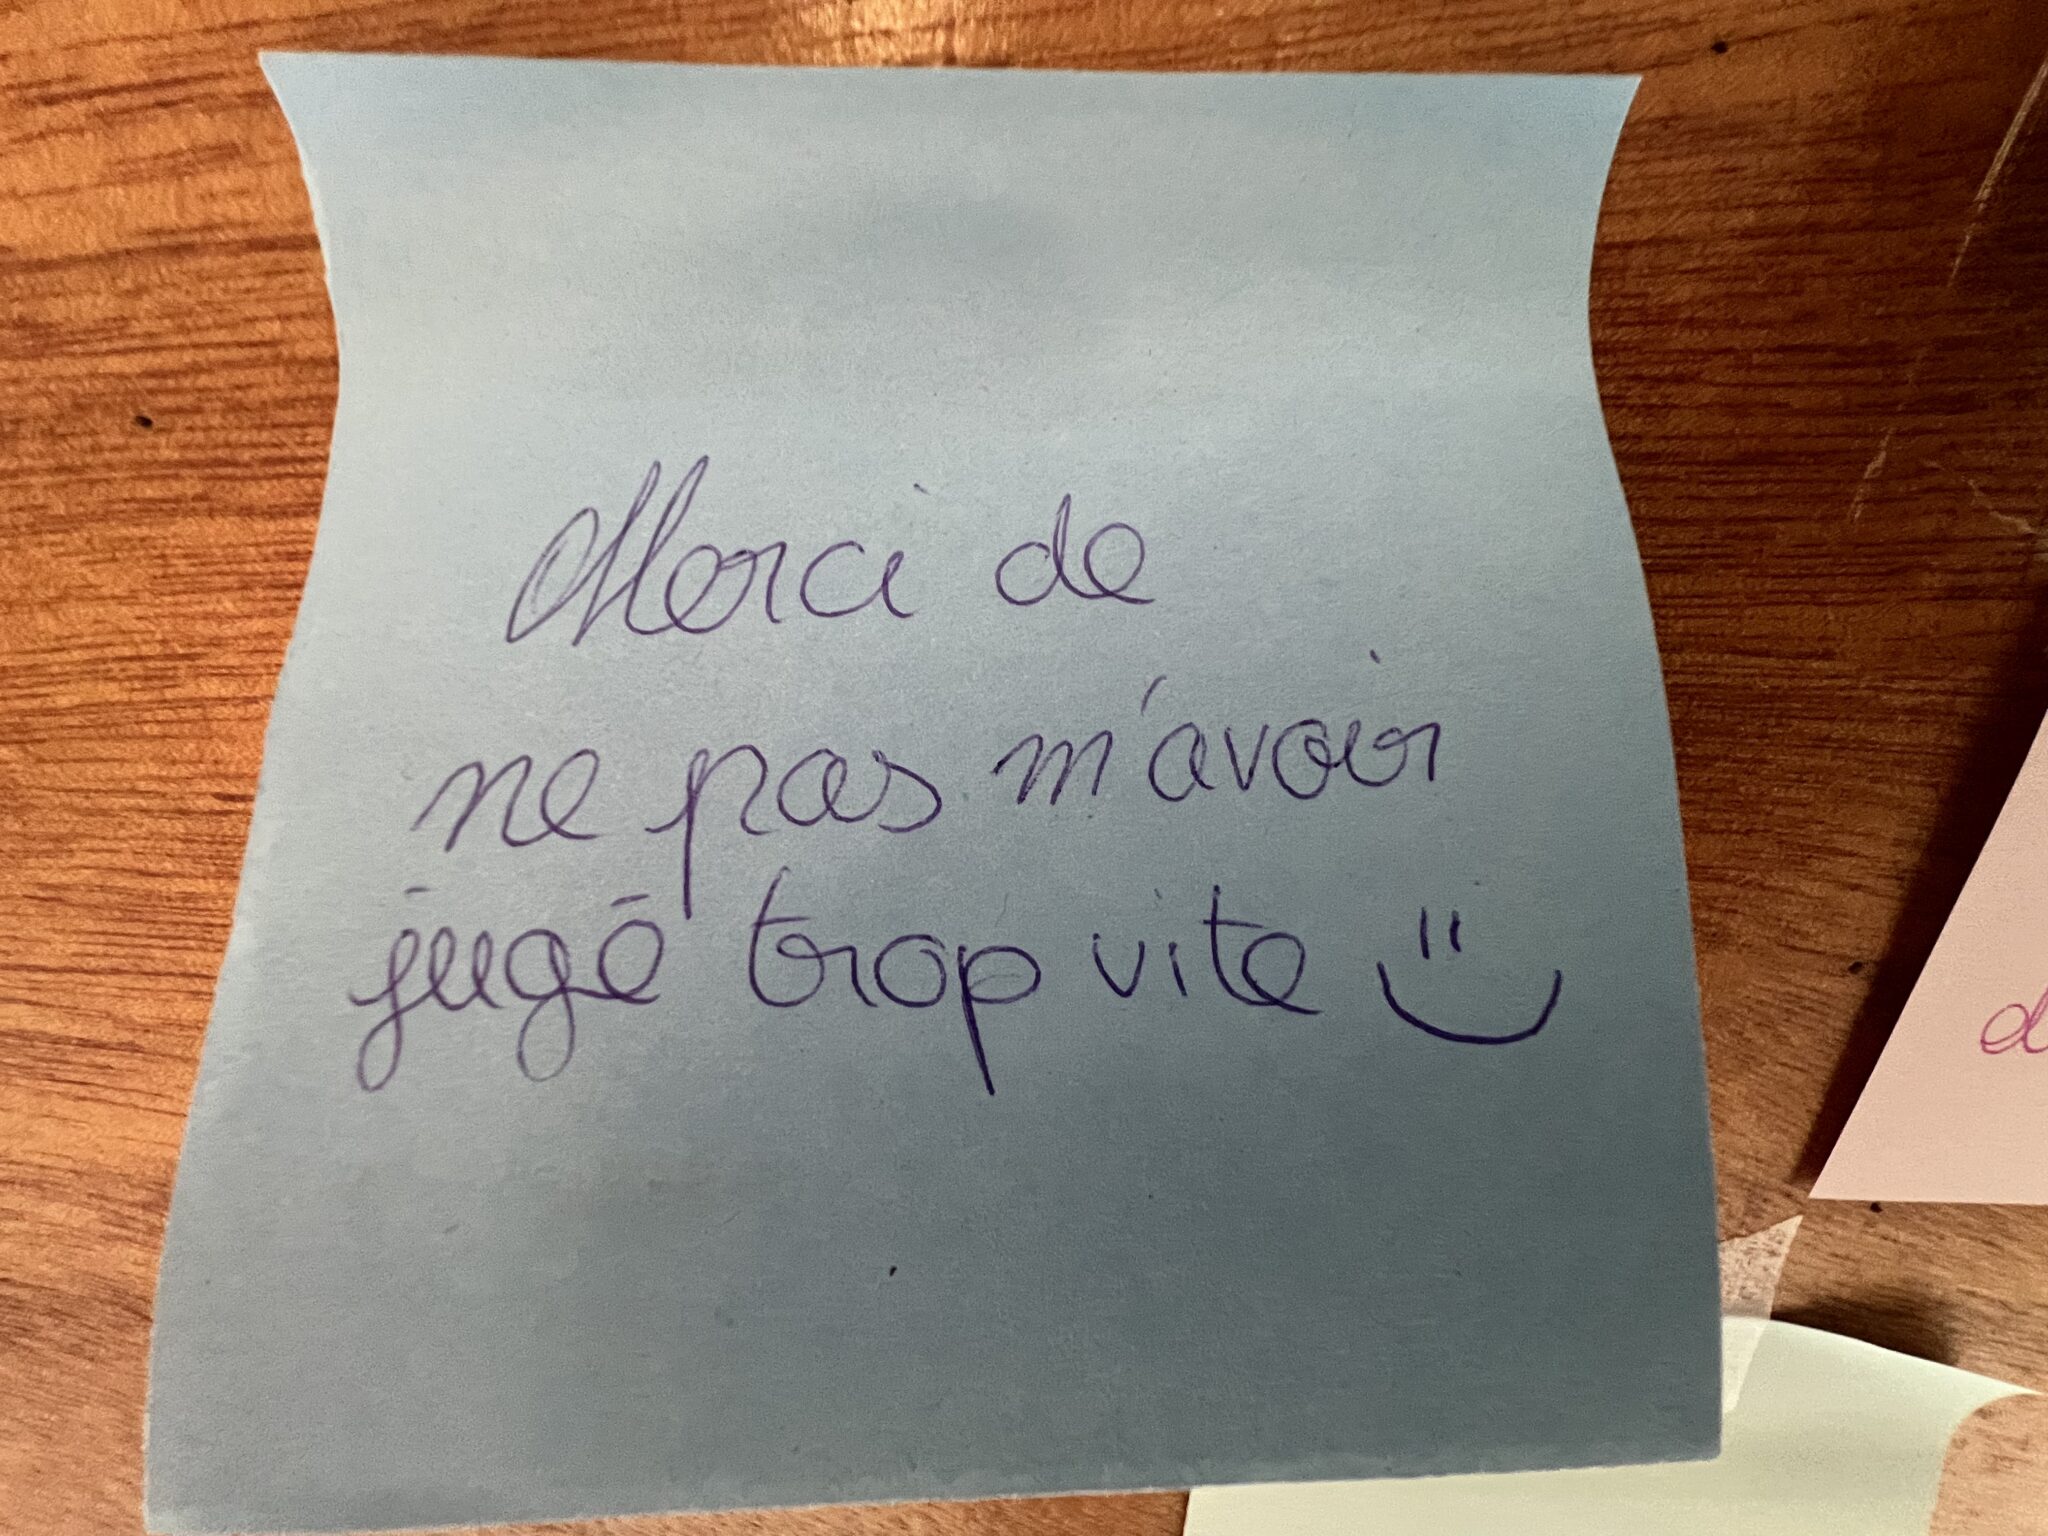 Merci de
ne pas m'avoir
jugé trop vite